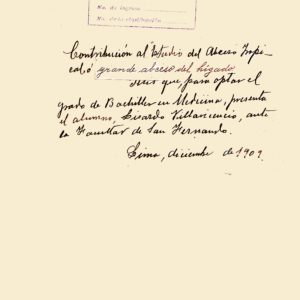 No. de ingreso
No. de la clasificación
Contribución al Estudio del Abceso Tropi
cal, ó grande abceso del hígado
Tesis que, para optar el
grado de Bachiller en Medicina, presenta
el alumno, Lisardo Villavicencio, ante
la Facultad de San Fernando.
Lima, diciembre de 1909